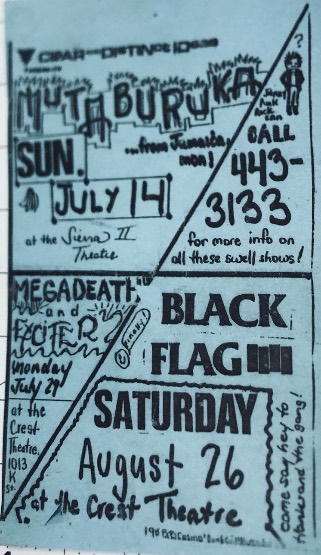 CLEAR and DISTINCT IDEAS
MUTABURUKA
...from Jamaica,
mon!
SUN.
JULY 14
at the Sierra II
Theatre
?
CALL
443-
3133
for more info on
all these swell shows!
MEGADEATH
and
EXCITER
monday
July 29
at the
Crest
Theatre,
1013
K
St.
BLACK
FLAG
SATURDAY
August 26
at the Crest Theatre
come say hey to
Hank and the gang!